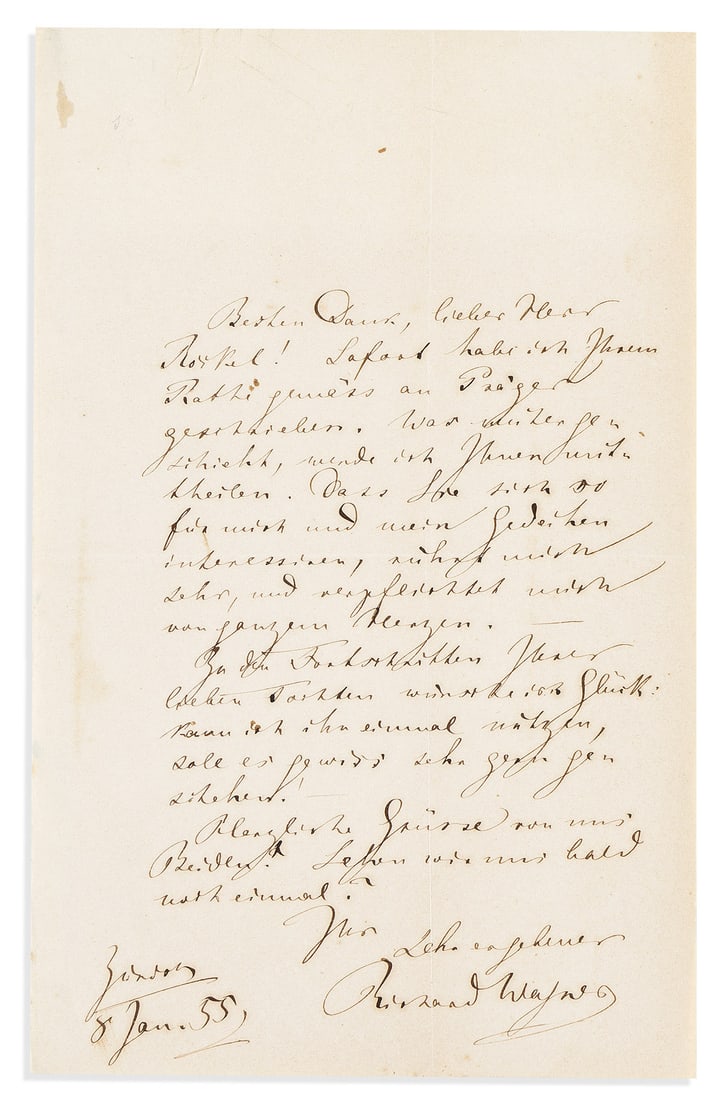 Besten Dank, lieber Herr
Röckel! Sofort habe ich Ihrem
Rathe gemäss an Präger
geschrieben. Was weiter ge-
schieht, werde ich Ihnen mit-
theilen. Dass Sie sich so
für mich und mein Gedeihen
interessiren, rührt mich
sehr, und verpflichtet mich
von ganzem Herzen. —
Zu den Fortschritten Ihrer
lieben Tochter wünsche ich Glück:
kann ich ihr einmal nützen,
soll es gewiss sehr gern ge-
schehen! —
Herzliche Grüsse von uns
Beiden! Sehen wir uns bald
noch einmal?
Ihr
sehr ergebener
Richard Wagner
Zürich
8 Jan. 55